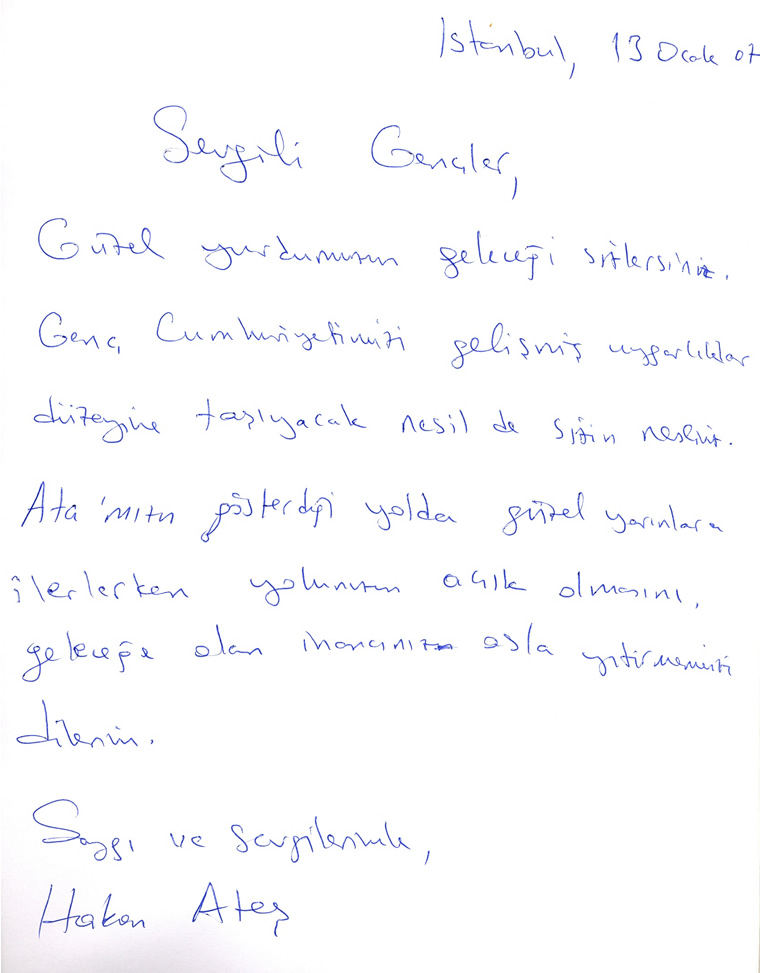 İstanbul, 13 Ocak 07
Sevgili Gençler,
Güzel yurdumuzun geleceği sizlersiniz.
Genç Cumhuriyetimizi gelişmiş uygarlıklar
düzeyine taşıyacak nesil de sizin nesliniz.
Ata'mızın gösterdiği yolda güzel yarınlara
ilerlerken yolunuzun açık olmasını,
geleceğe olan inancınızı asla yitirmemenizi
dilerim.
Saygı ve Sevgilerimle,
Hakan Ateş